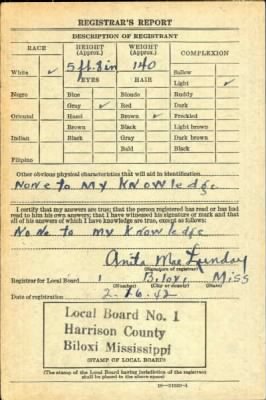 REGISTRAR'S REPORT
DESCRIPTION OF REGISTRANT
RACE HEIGHT (Approx.) WEIGHT (Approx.) COMPLEXION
White ✓ 5 ft. 8 in 140 Sallow
EYES HAIR Light ✓
Negro Blue Blonde Ruddy
Gray ✓ Red Dark
Oriental Hazel Brown ✓ Freckled
Brown Black Light brown
Indian Black Gray Dark brown
Bald Black
Filipino
Other obvious physical characteristics that will aid in identification
None to my knowledge
I certify that my answers are true; that the person registered has read or has had
read to him his own answers; that I have witnessed his signature or mark and that
all of his answers of which I have knowledge are true, except as follows:
None to my knowledge
Anita Mae
(Signature of registrar)
Registrar for Local Board 1 Biloxi, Miss
(Number) (City or county) (State)
Date of registration 2-16-42
Local Board No. 1
Harrison County
Biloxi Mississippi
(STAMP OF LOCAL BOARD)
(The stamp of the Local Board having jurisdiction of the registrant
shall be placed in the above space)